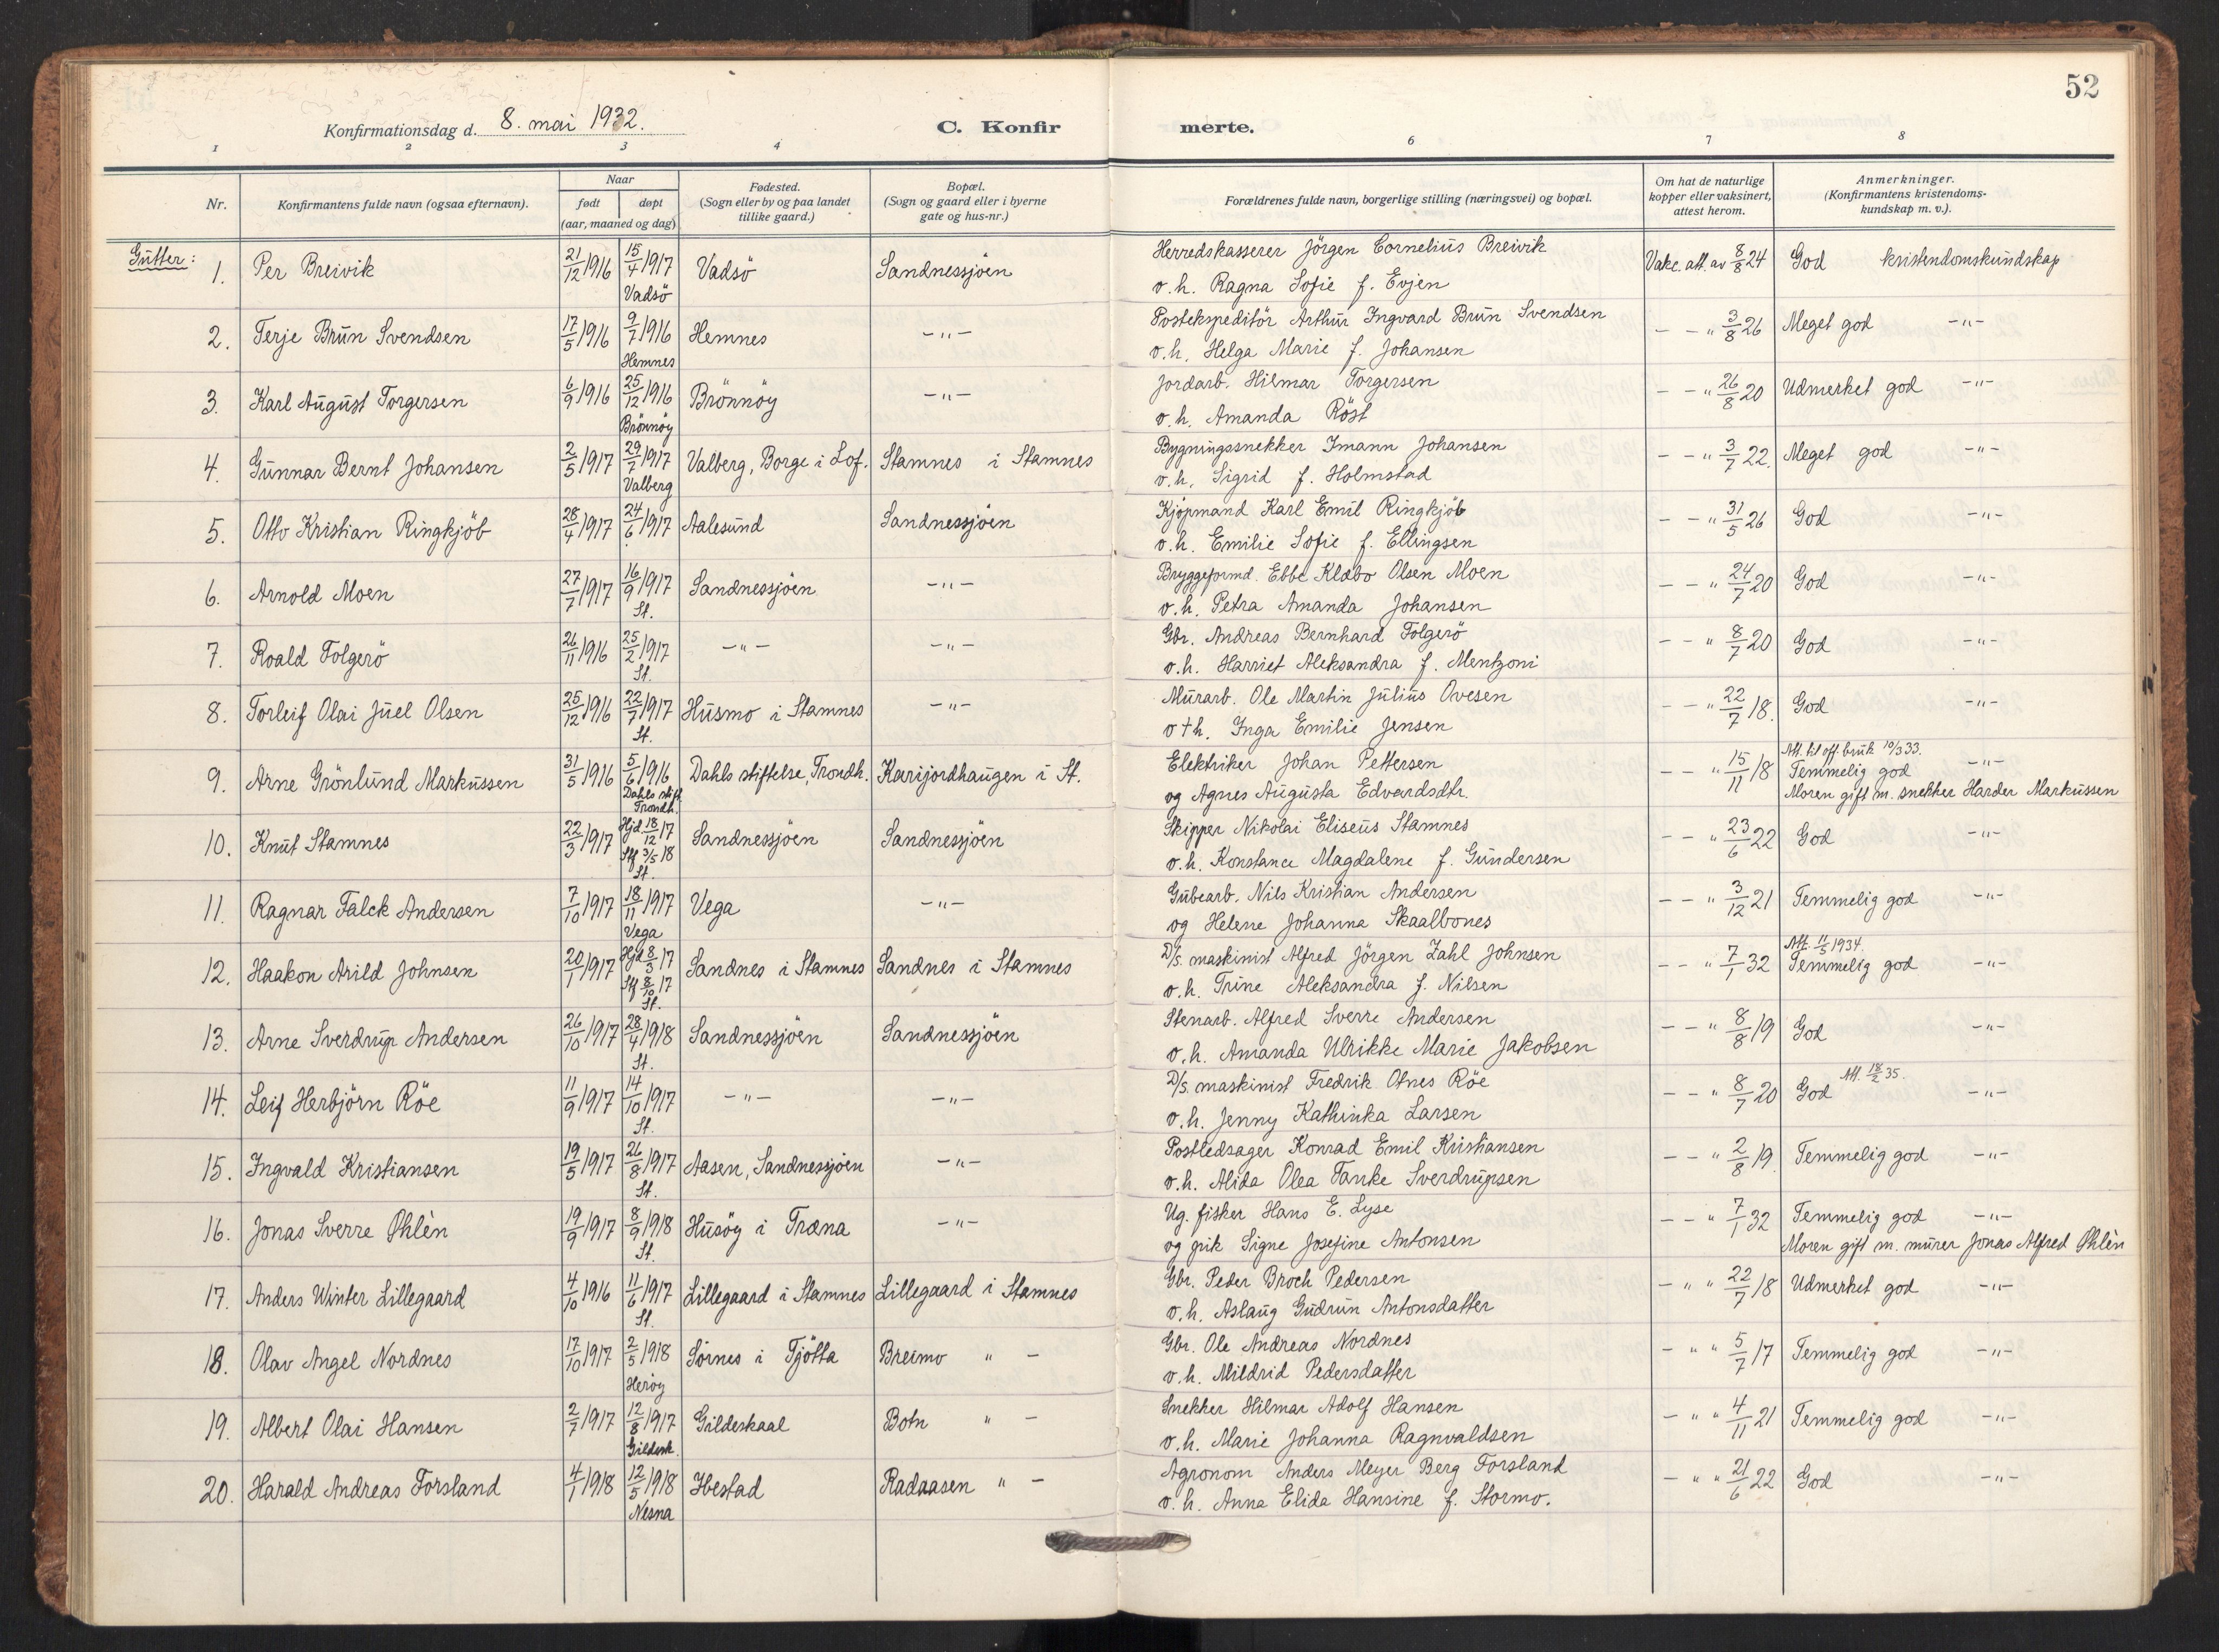 52
Konfirmationsdag d. 8. mai 1932.
C. Konfirmerte.
1 2 3 4 6 7 8
Nr.
Konfirmantens fulde navn (ogsaa efternavn).
Naar
født døpt
(aar, maaned og dag)
Fødested.
(Sogn eller by og paa landet
tillike gaard.)
Bopæl.
(Sogn og gaard eller i byerne
gate og hus-nr.)
Forældrenes fulde navn, borgerlige stilling (næringsvei) og bopæl.
Om hat de naturlige
kopper eller vaksinert,
attest herom.
Anmerkninger.
(Konfirmantens kristendoms-
kundskap m. v.).
Gutter:
1. Per Breivik 21/12 1916 15/4 1917 Vadsö Vadsö Sandnessjöen
Herredskasserer Jörgen Cornelius Breivik
o.h. Ragna Sofie f. Evjen
Vakc. att. av 8/8 24 God kristendomskundskap
2. Terje Brun Svendsen 17/5 1916 9/7 1916 Hemnes Hemnes -"-
Postekspeditör Arthur Ingvard Brun Svendsen
o.h. Helga Marie f. Johansen
- - " 3/8 26 Meget god -"-
3. Karl August Torgersen 6/9 1916 25/12 1916 Brönnöy Brönnöy -"-
Jordarb. Hilmar Torgersen
o.h. Amanda Röst
- - " 26/8 20 Udmerket god -"-
4. Gunnar Bernt Johansen 2/5 1917 29/7 1917 Valberg Valberg, Borge i Lof. Stamnes i Stamnes
Bygningssnekker Imann Johansen
o.h. Sigrid f. Holmstad
- - " 3/7 22. Meget god -"-
5. Otto Kristian Ringkjöb 28/4 1917 24/6 1917 Aalesund Sandnessjöen
Kjöpmand Karl Emil Ringkjöb
o.h. Emilie Sofie f. Ellingsen
- - " 31/5 26 God -"-
6. Arnold Moen 27/7 1917 16/9 1917 St. Sandnessjöen -"-
Bryggeformd. Ebbe Klæbo Olsen Moen
o.h. Petra Amanda Johansen
- - " 24/7 20 God -"-
7. Roald Folgerö 26/11 1916 25/2 1917 St. -"- -"-
Gbr. Andreas Bernhard Folgerö
o.h. Harriet Aleksandra f. Mentzoni
- - " 8/7 20 God -"-
8. Torleif Olai Juel Olsen 25/12 1916 22/7 1917 St. Husmo i Stamnes -"-
Murarb. Ole Martin Julius Ovesen
o † h. Inga Emilie Jensen
- - " 22/7 18. God -"-
9. Arne Grönlund Markussen 31/5 1916 5/6 1916 Dahls stift. Trondh. Dahls stiftelse, Trondh. Karijordhaugen i St.
Elektriker Johan Pettersen
og Agnes Augusta Edvardsdtr.
- - " 15/11 18 Att. til off. bruk 10/3 33.
Temmelig god -"-
Moren gift m. snekker Harder Markussen
10. Knut Stamnes 22/3 1917 Hjd 18/12 17 Stf 3/5 18 St. Sandnessjöen Sandnessjöen
Skipper Nikolai Eliseus Stamnes
o.h. Konstance Magdalene f. Gundersen
- - " 23/6 22 God -"-
11. Ragnar Falck Andersen 7/10 1917 18/11 1917 Vega Vega -"-
Gubearb. Nils Kristian Andersen
og Helene Johanna Skaalbones
- - " 3/12 21 Temmelig god -"-
12. Haakon Arild Johnsen 20/1 1917 Hjd 8/3 17 Stf 8/10 17 St. Sandnes i Stamnes Sandnes i Stamnes
D/s. maskinist Alfred Jörgen Zahl Johnsen
o.h. Trine Aleksandra f. Nilsen
- - " 7/1 32 Att. 11/5 1934.
Temmelig god -"-
13. Arne Sverdrup Andersen 26/10 1917 28/4 1918 St. Sandnessjöen Sandnessjöen
Stenarb. Alfred Sverre Andersen
o.h. Amanda Ulrikke Marie Jakobsen
- - " 8/8 19 God -"-
14. Leif Herbjörn Röe 11/9 1917 14/10 1917 St. -"- -"-
D/s. maskinist Fredrik Otnes Röe
o.h. Jenny Kathinka Larsen
- - " 8/7 20 God Att. 18/2 35. -"-
15. Ingvald Kristiansen 19/5 1917 26/8 1917 St. Aasen, Sandnessjöen -"-
Postledsager Konrad Emil Kristiansen
o.h. Alida Olea Tanke Sverdrupsen
- - " 2/8 19. Temmelig god -"-
16. Jonas Sverre Øhlèn 19/9 1917 8/9 1918 St. Husöy i Træna -"-
Ug. fisker Hans E. Lyse
og pik Signe Josefine Antonsen
- - " 7/1 32 Temmelig god -"-
Moren gift m. murer Jonas Alfred Øhlèn
17. Anders Winter Lillegaard 4/10 1916 11/6 1917 St. Lillegaard i Stamnes Lillegaard i Stamnes
Gbr. Peder Broch Pedersen
o.h. Aslaug Gudrun Antonsdatter
- " " 22/7 18 Udmerket god -"-
18. Olav Angel Nordnes 17/10 1917 2/5 1918 Heröy Sörnes i Tjötta Breimo " -
Gbr. Ole Andreas Nordnes
o.h. Mildrid Pedersdatter
- " " 5/7 17 Temmelig god -"-
19. Albert Olai Hansen 2/7 1917 12/8 1917 Gildesk. Gildeskaal Botn " -
Snekker Hilmar Adolf Hansen
o.h. Marie Johanna Ragnvaldsen
- " " 4/11 21 Temmelig god -"-
20. Harald Andreas Forsland 4/1 1918 12/5 1918 Nesna Ibestad Radaasen " -
Agronom Anders Meyer Berg Forsland
o.h. Anna Elida Hansine f. Stormo.
- " " 21/6 22 God -"-